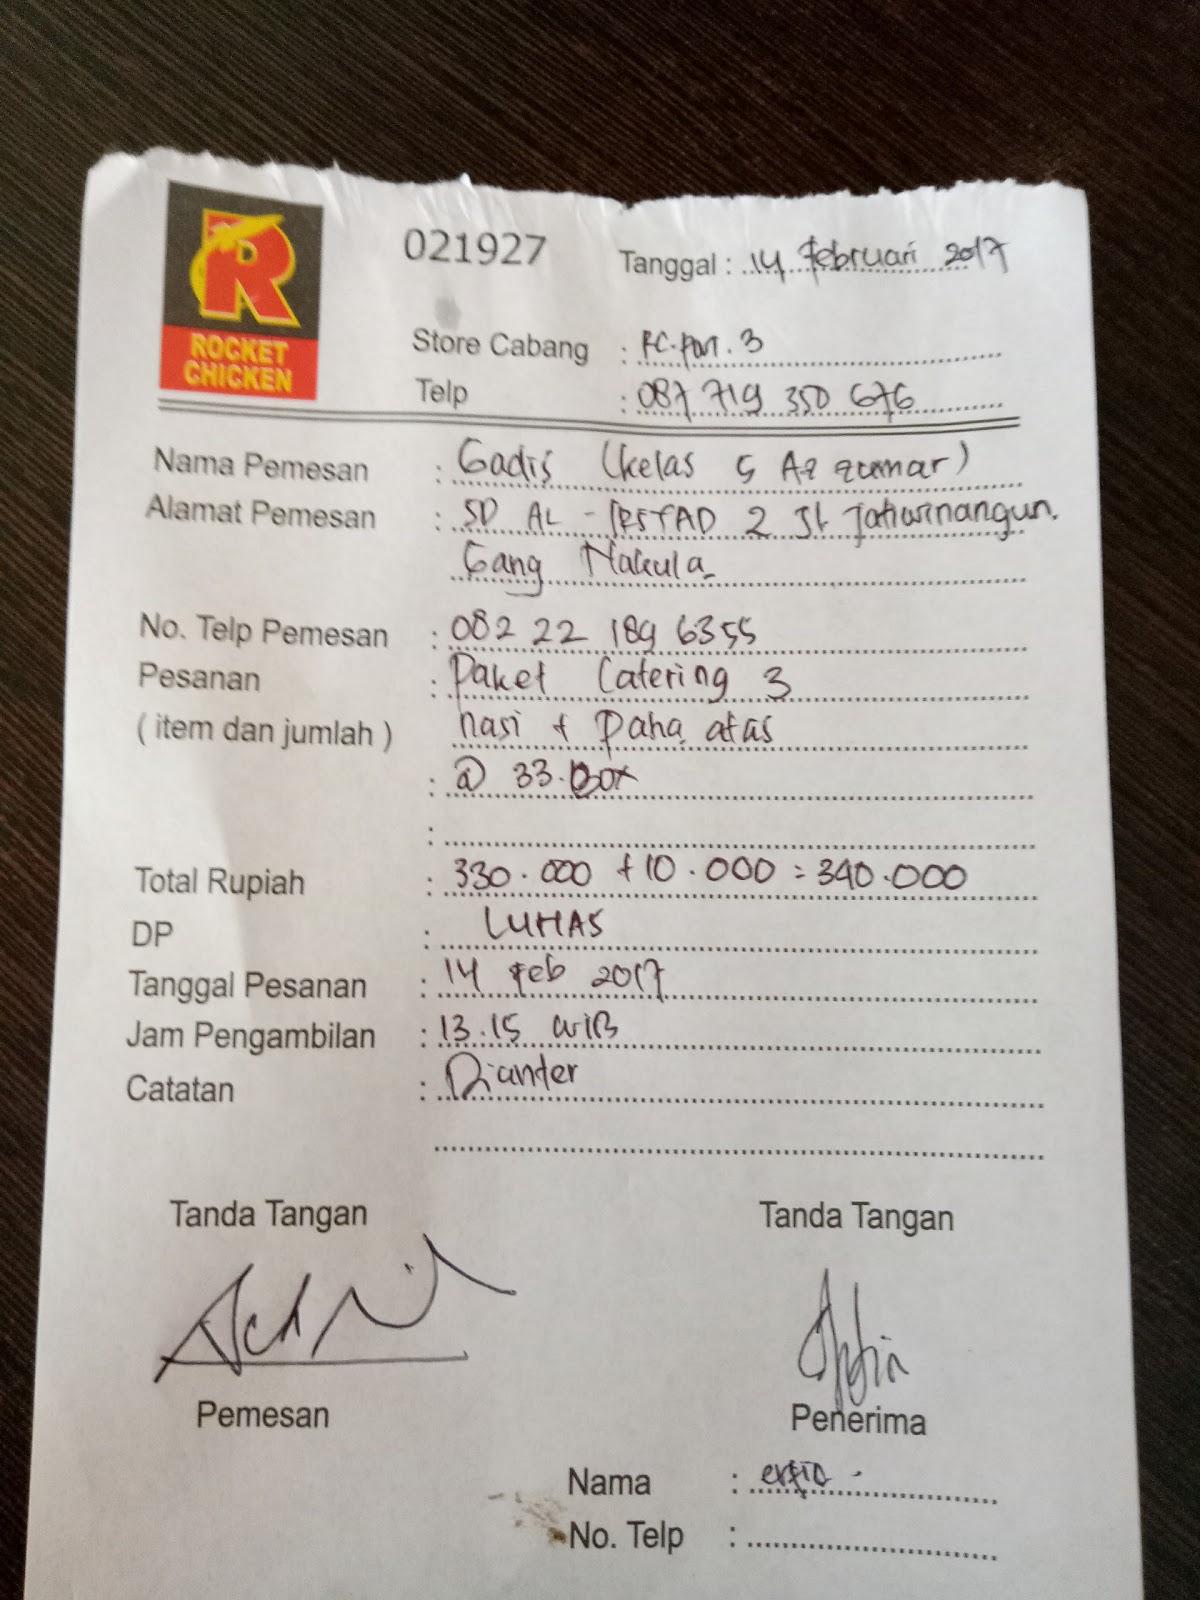 R
ROCKET
CHICKEN
021927
Tanggal : 14 Februari 2017
Store Cabang : RC. Pwt. 3
Telp : 087 719 350 676
Nama Pemesan : Gadis (kelas 5 Az zumar)
Alamat Pemesan : SD AL - IRSYAD 2 Jl.
Gang Nakula
No. Telp Pemesan : 082 22 189 6355
Pesanan : Paket Catering 3
( item dan jumlah ) nasi + Paha atas
: @ 33. Box
:
Total Rupiah : 330.000 + 10.000 = 340.000
DP : LUNAS
Tanggal Pesanan : 14 Feb 2017
Jam Pengambilan : 13.15 WIB
Catatan : Dianter
Tanda Tangan Tanda Tangan
Pemesan Penerima
Nama :
No. Telp :